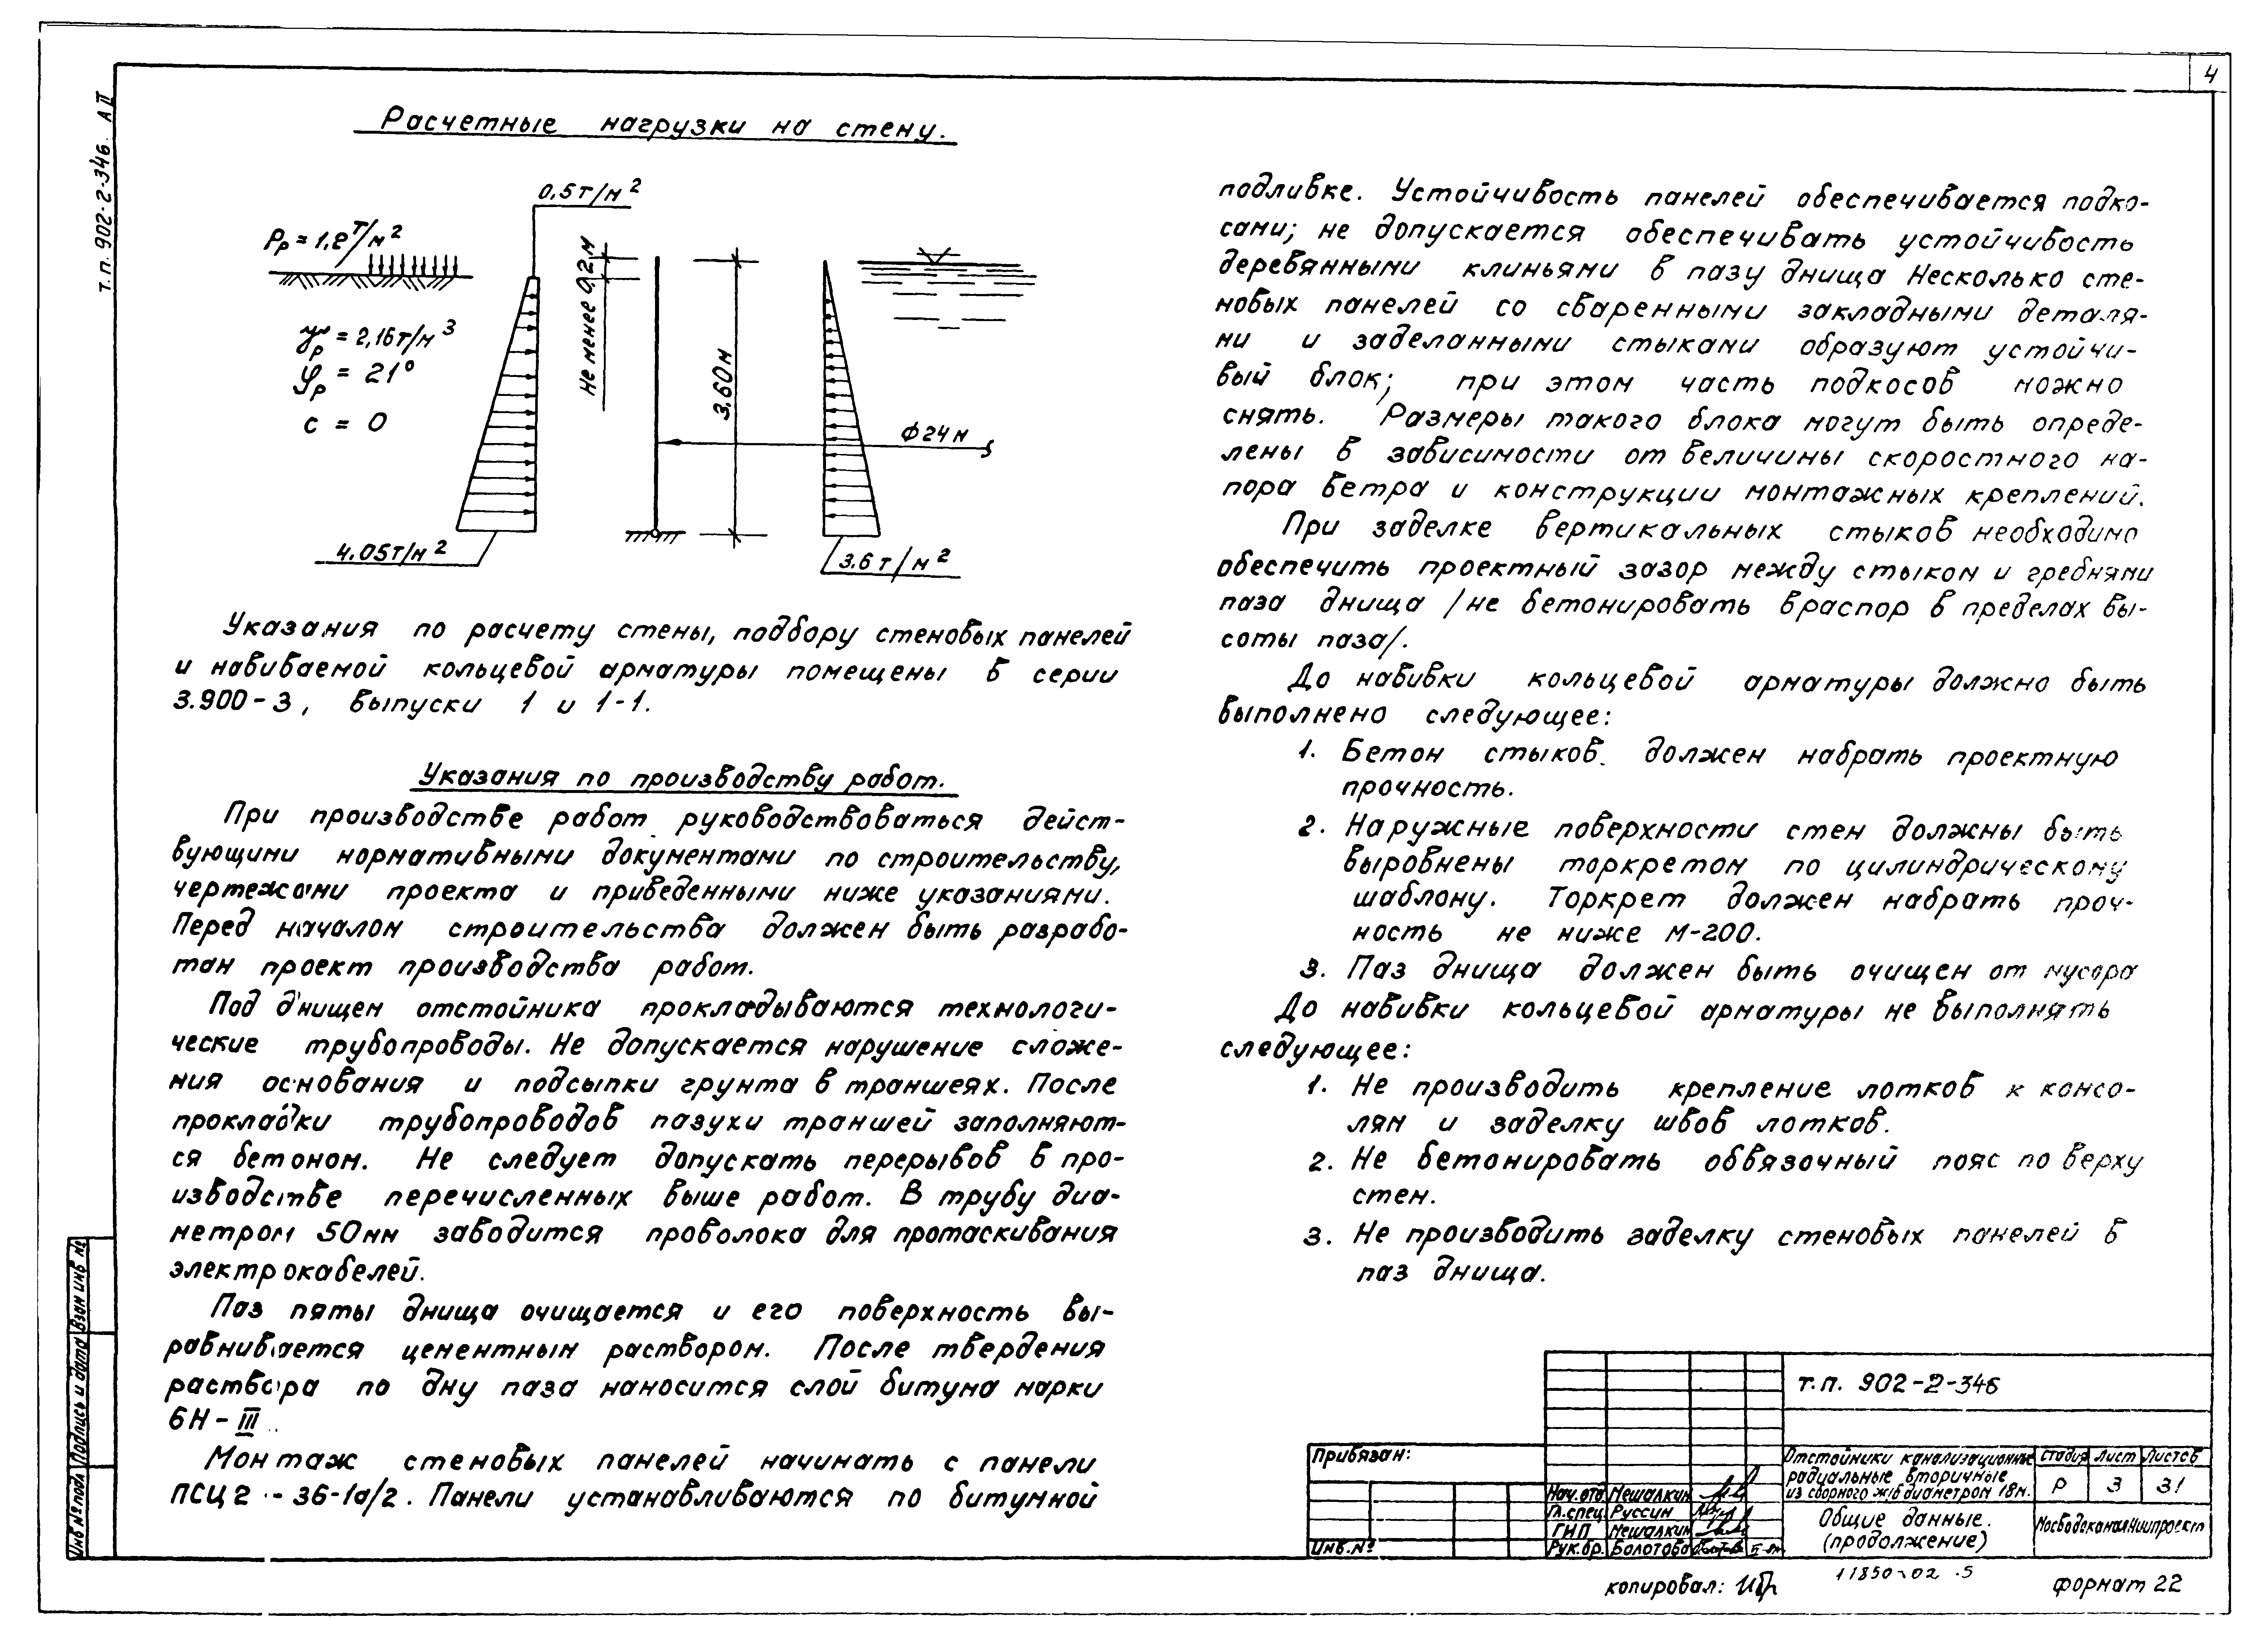 4
т.п. 902-2-346. А II
Расчетные нагрузки на стену.
0,5т/м²
Рр = 1,8 т/м²
γр = 2,16т/м³
φр = 21°
с = 0
Не менее 0,2м
3,60м
ф24м
4.05т/м²
3.6 т/м²
Указания по расчету стены, подбору стеновых панелей
и навиваемой кольцевой арматуры помещены в серии
3.900-3, выпуски 1 и 1-1.
Указания по производству работ.
При производстве работ руководствоваться дейст-
вующими нормативными документами по строительству,
чертежами проекта и приведенными ниже указаниями.
Перед началом строительства должен быть разрабо-
тан проект производства работ.
Под днищем отстойника прокладываются технологи-
ческие трубопроводы. Не допускается нарушение сложе-
ния основания и подсыпки грунта в траншеях. После
прокладки трубопроводов пазухи траншей заполняют-
ся бетоном. Не следует допускать перерывов в про-
изводстве перечисленных выше работ. В трубу диа-
метром 50мм заводится проволока для протаскивания
электрокабелей.
Паз пяты днища очищается и его поверхность вы-
равнивается цементным раствором. После твердения
раствора по дну паза наносится слой битума марки
БН-III
Монтаж стеновых панелей начинать с панели
ПСЦ2-36-1а/2. Панели устанавливаются по битумной
подливке. Устойчивость панелей обеспечивается подко-
сами; не допускается обеспечивать устойчивость
деревянными клиньями в пазу днища Несколько сте-
новых панелей со сваренными закладными деталя-
ми и заделанными стыками образуют устойчи-
вый блок; при этом часть подкосов можно
снять. Размеры такого блока могут быть опреде-
лены в зависимости от величины скоростного на-
пора ветра и конструкции монтажных креплений.
При заделке вертикальных стыков необходимо
обеспечить проектный зазор между стыком и гребнями
паза днища /не бетонировать враспор в пределах вы-
соты паза/.
До навивки кольцевой арматуры должно быть
выполнено следующее:
1. Бетон стыков должен набрать проектную
прочность.
2. Наружные поверхности стен должны быть
выровнены торкретом по цилиндрическому
шаблону. Торкрет должен набрать проч-
ность не ниже М-200.
3. Паз днища должен быть очищен от мусора
До навивки кольцевой арматуры не выполнять
следующее:
1. Не производить крепление лотков к консо-
лям и заделку швов лотков.
2. Не бетонировать обвязочный пояс по верху
стен.
3. Не производить заделку стеновых панелей в
паз днища.
Инв № подл Подпись и дата Взам инв №
Привязан:
Инв.№
Нач.отд Мешалкин
Гл.спец. Руссин
ГИП Мешалкин
Рук.бр. Болотова
т.п. 902-2-346
Отстойники канализационные
радиальные вторичные
из сборного ж/б диаметром 18м.
Стадия Лист Листов
Р 3 31
Общие данные.
(продолжение)
МосводоканалНИИпроект
копировал:
11850-02 5
формат 22